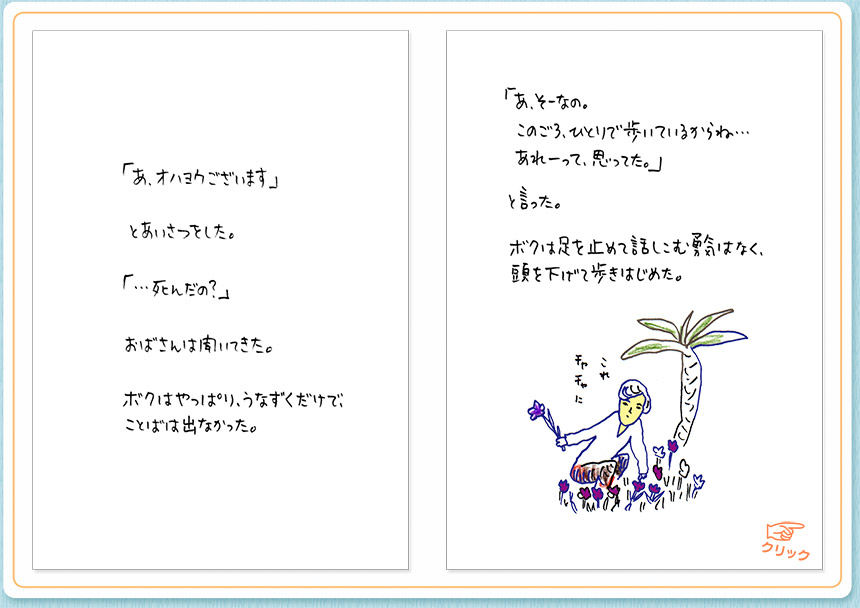 「あ、オハヨウございます」
とあいさつをした。
「…死んだの?」
おばさんは聞いてきた。
ボクはやっぱり、うなずくだけで、
ことばは出なかった。
「あ、そーなの。
このごろ、ひとりで歩いているからね…
あれーって、思ってた。」
と言った。
ボクは足を止めて話しこむ勇気はなく、
頭を下げて歩きはじめた。
これ
チャチャに
クリック